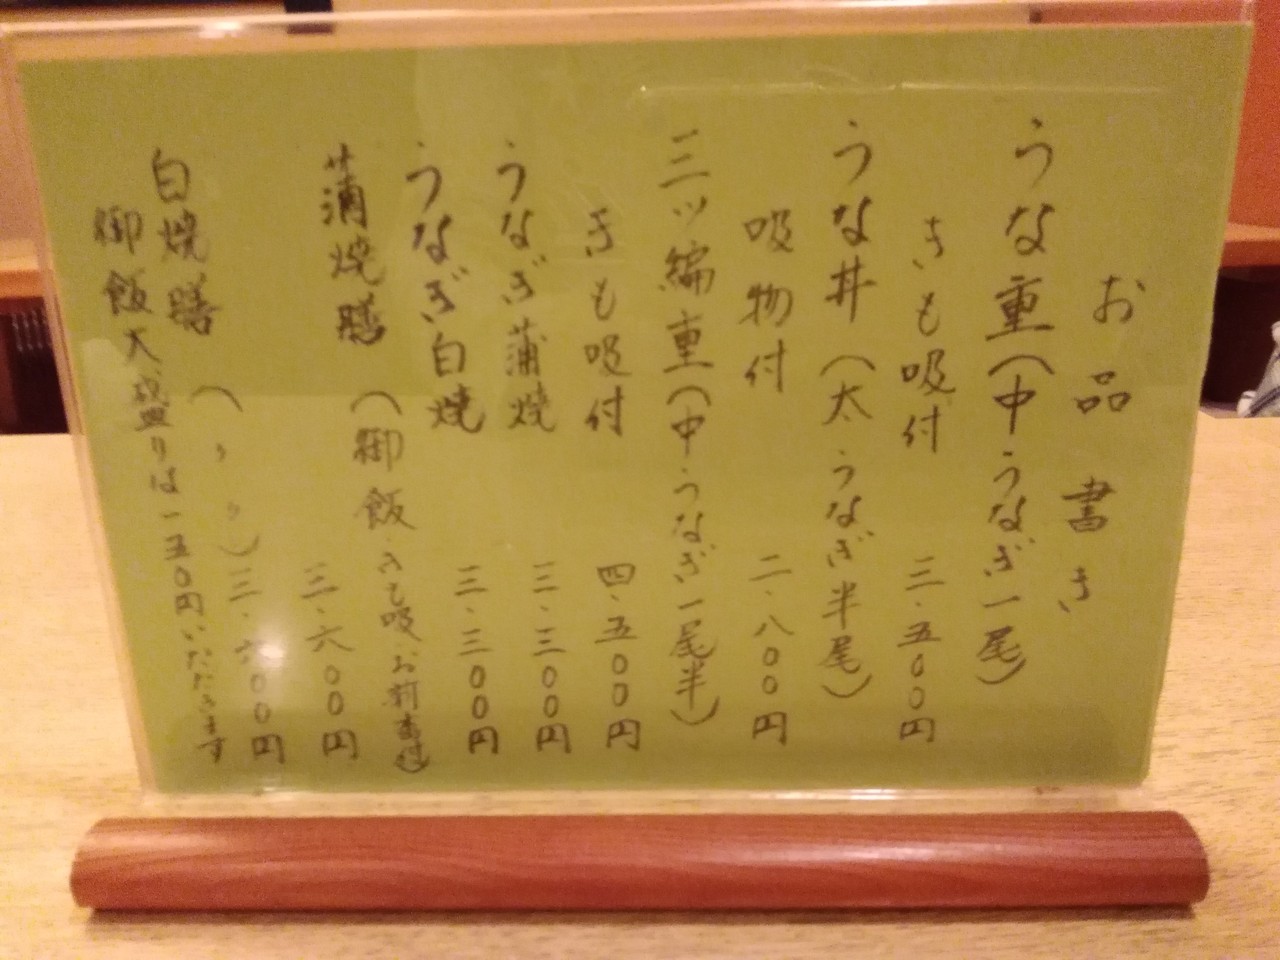 お品書き
うな重(中うなぎ一尾)
きも吸付 三.五〇〇円
うな丼(太うなぎ半尾)
吸物付 二.八〇〇円
三ツ編重(中うなぎ一尾半)
きも吸付 四.五〇〇円
うなぎ蒲焼 三.三〇〇円
うなぎ白焼 三.三〇〇円
蒲焼膳(御飯.きも吸.お新香付)
三.六〇〇円
白焼膳(〃〃)三.六〇〇円
御飯大盛りは一五〇円いただきます